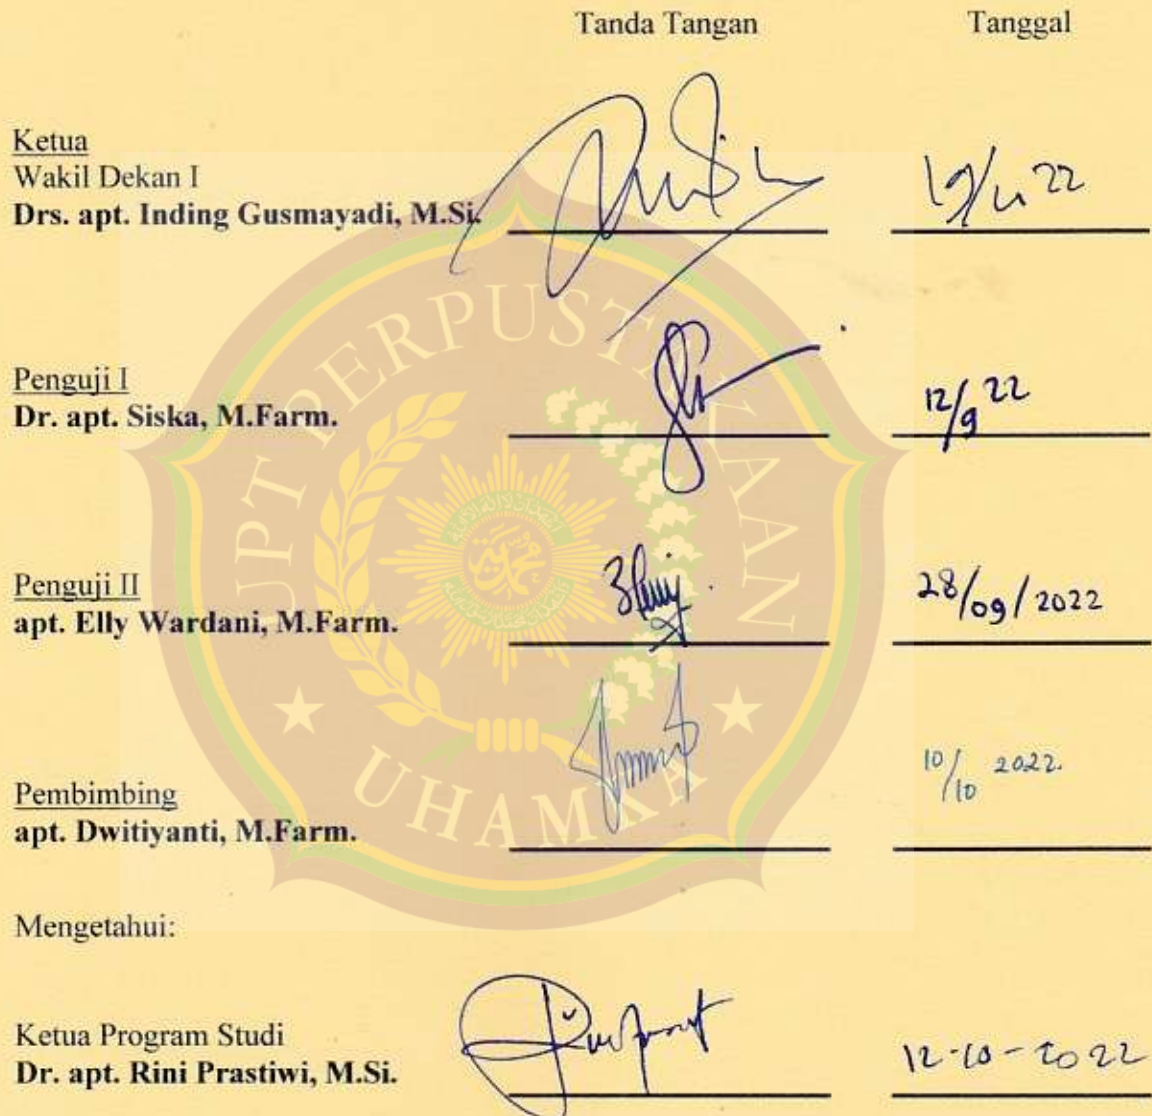 Tanda Tangan Tanggal
Ketua
Wakil Dekan I
Drs. apt. Inding Gusmayadi, M.Si.
UPT PERPUSTAKAAN
Penguji I
Dr. apt. Siska, M.Farm.
12/9 22
Penguji II
apt. Elly Wardani, M.Farm.
28/09/2022
Pembimbing
apt. Dwitiyanti, M.Farm.
10/10 2022.
UHAMKA
Mengetahui:
Ketua Program Studi
Dr. apt. Rini Prastiwi, M.Si.
12-10-2022